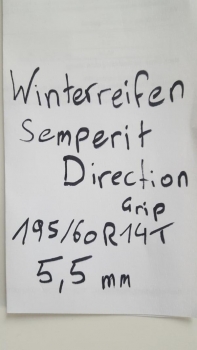 Winterreifen
Semperit
Direction
Grip
195/60R14T
5,5 mm